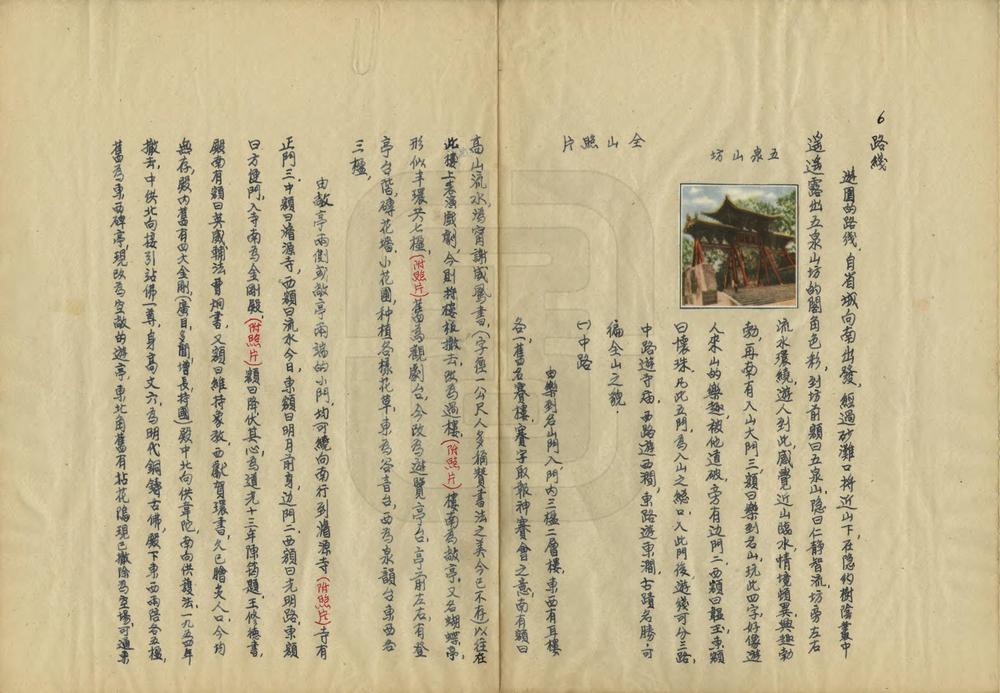 6 路线
遊園的路线，自省城向南出發，經過砂灘口將近山下，在隐约樹陰叢中
遥遥露出五泉山坊的閣角色彩，到坊前額曰五泉山，隐曰仁静智流，坊旁左右
流水環繞，遊人到此，感覺近山臨水，情境頓異，興趣勃
勃，再南有入山大門三，額曰樂到名山，玩此四字好像遊
人来山的樂趣被他道破，旁有边門二，西額曰韞玉，東額
曰懷珠，凡此五門，為入山之總口，入此門後，遊綫可分三路，
中路遊寺廟，西路遊西澗，東路遊東澗，古蹟名勝，可
徧全山之貌。
五泉山坊
全山照片
㈠中路
由樂到名山門入，門内三楹二層樓，東西有耳樓
各一，舊名賽樓，賽字取報神賽會之意，南有額曰
高山流水，湯霄谢威鳳書，（字徑一公尺，人多稱赞書法之美，今已不存）以往在
此樓上表演戲劇，今則将樓板撤去，改為過樓，（附照片）樓南為敞亭，又名蝴蝶亭，
形似半環，共七楹，（附照片）舊為觀劇台，今改為遊覽亭台，亭前左右有登
亭台階，磚花墙，小花園，种植各樣花草，東為谷音台，西為泉韻台，東西各
三楹。
由敞亭兩側或敞亭兩端的小門，均可繞向南行到濬源寺（附照片）寺有
正門三，中額曰濬源寺，西額曰流水今日，東額曰明月前身，边門二，西額曰光明路，東額
曰方便門，入寺南為金剛殿，（附照片）額曰降伏其心，為道光十三年陳錡題，王修德書，
殿南有額曰英威輔法，曹炯書，又額曰維持象教，西猷賀環書，久已膾炙人口，今均
無存，殿内舊有四大金剛（廣目多聞增長持國）殿中北向供韋陀，南向供護法，一九五四年
撤去，中供北向接引站佛一尊，身高丈六，為明代銅鑄古佛，殿下東西兩陪各五楹，
舊為東西碑亭，現改為空敞的遊亭，東北角舊有拈花隝，現已撤除為空場，可通東